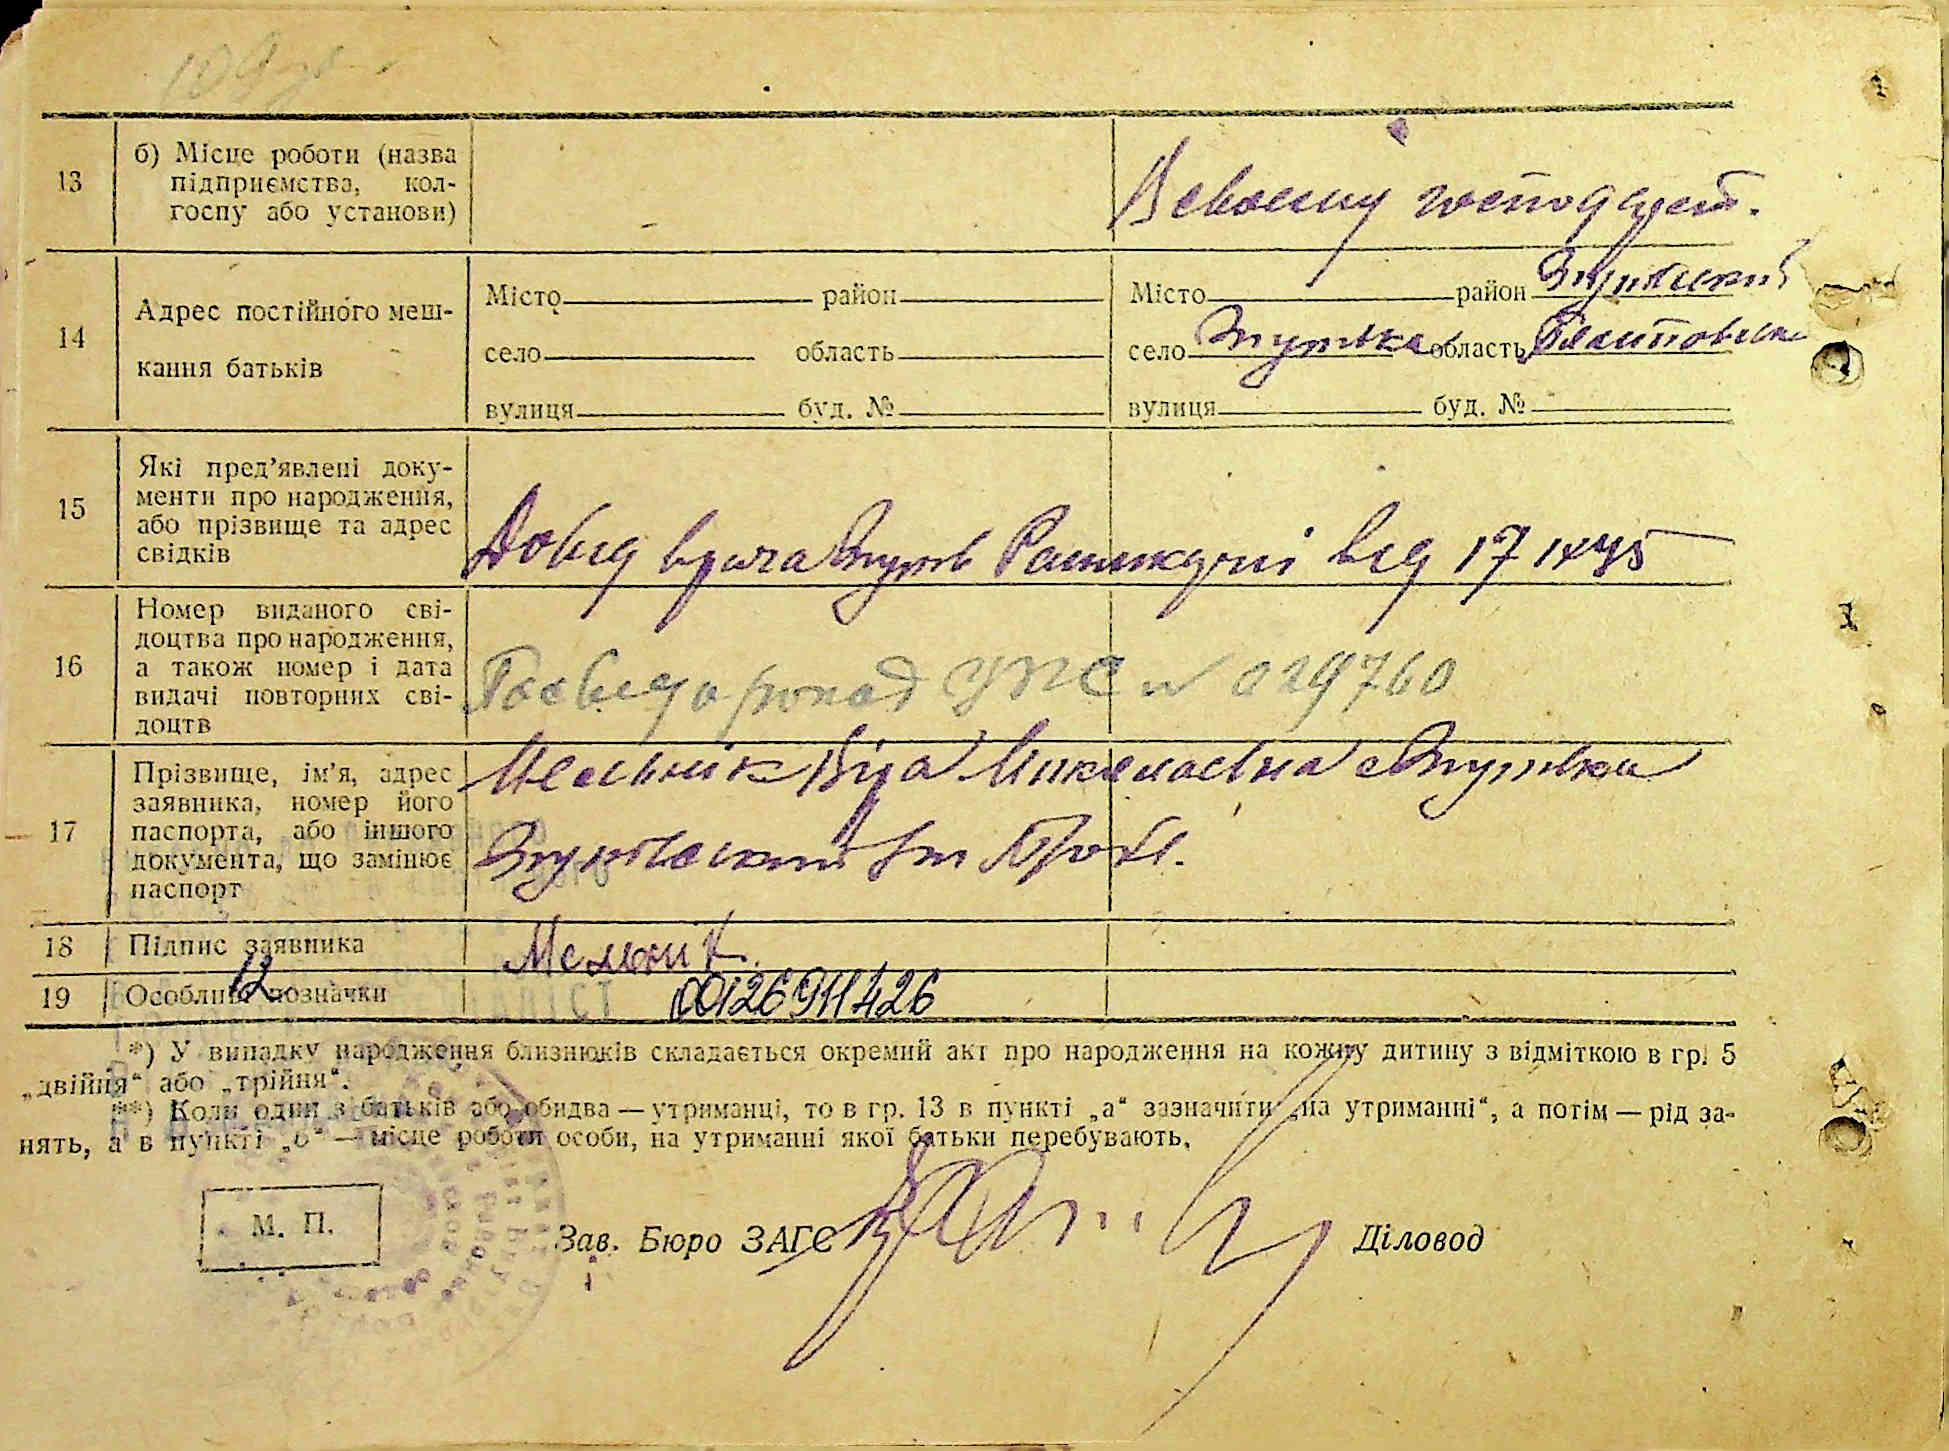 13
б) Місце роботи (назва
підприємства, кол-
госпу або установи)
В своєму господарст.
14
Адрес постійного меш-
кання батьків
Місто район
село область
вулиця буд. №
Місто район Згурівський
село Згурівка область Полтавська
вулиця буд. №
15
Які пред’явлені доку-
менти про народження,
або прізвище та адрес
свідків
Довід врача Згурів від 17
16
Номер виданого сві-
доцтва про народження,
а також номер і дата
видачі повторних сві-
доцтв
029760
17
Прізвище, ім’я, адрес
заявника, номер його
паспорта, або іншого
документа, що замінює
паспорт
Мельник Віра Миколаєвна с Згурівка
Згурівський
18
Підпис заявника
Мельник.
19
Особливі позначки
12
00126911426
*) У випадку народження близнюків складається окремий акт про народження на кожну дитину з відміткою в гр. 5
„двійня“ або „трійня“.
**) Коли один з батьків або обидва — утриманці, то в гр. 13 в пункті „а“ зазначити „на утриманні“, а потім — рід за-
нять, а в пункті „б“ — місце роботи особи, на утриманні якої батьки перебувають.
М. П.
Зав. Бюро ЗАГС
Діловод